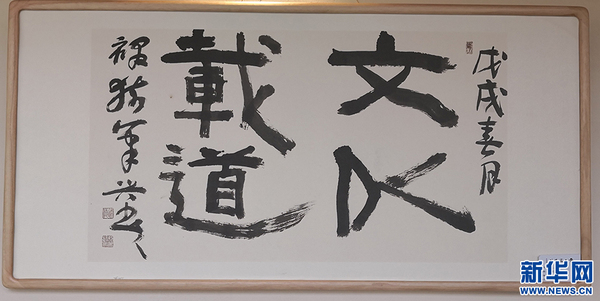 戊戌春月
文以
載道
新华网
WWW.NEWS.CN